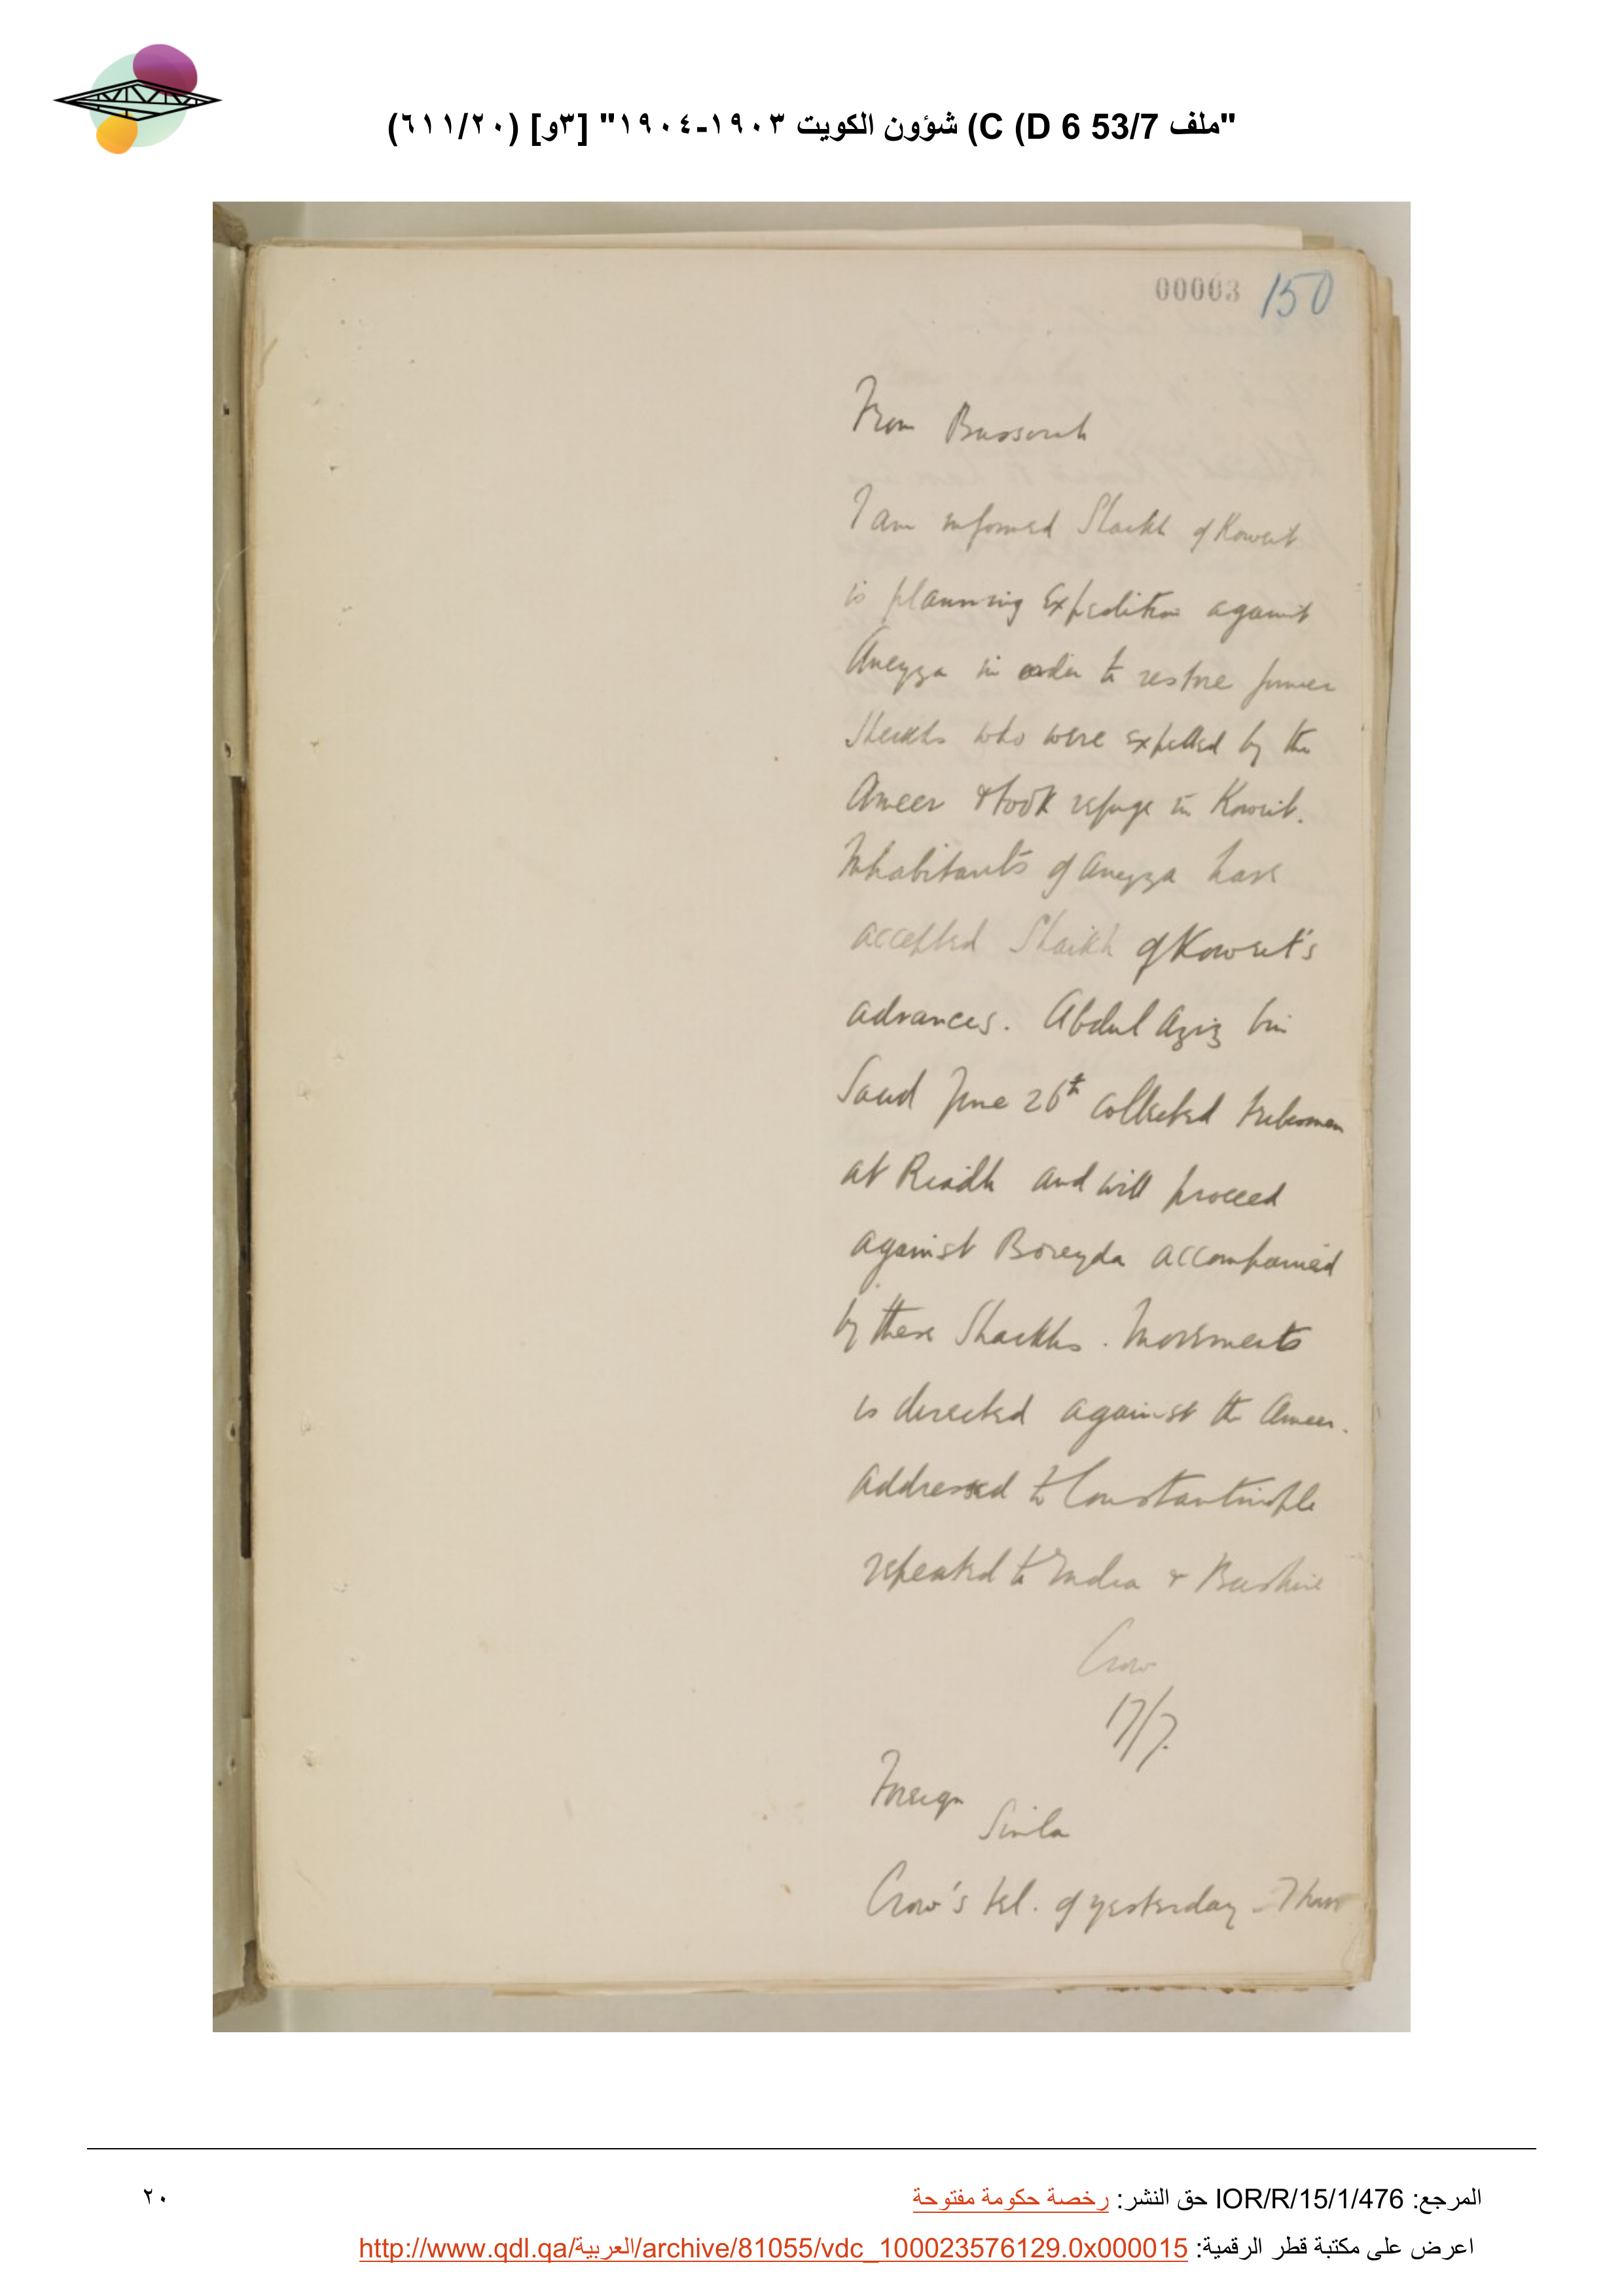 "ملف 53/7 C (D 6) شؤون الكويت ١٩٠٣-١٩٠٤" [٣و] (٦١١/٢٠)
00003 150
From Bussorah
I am informed Shaikh of Koweit
is planning Expedition against
Aneyza in order to restore former
Sheikhs who were expelled by the
Ameer & took refuge in Koweit.
Inhabitants of Aneyza have
accepted Shaikh of Koweit's
advances. Abdul Aziz bin
Saud June 26th collected tribesmen
at Riadh and will proceed
against Boreyda accompanied
by these Shaikhs. Movements
is directed against the Ameer.
Addressed to Constantinople
repeated to India & Bushire
Crow
17/7.
Foreign
Simla
Crow's tel. of yesterday -
المرجع: IOR/R/15/1/476 حق النشر: رخصة حكومة مفتوحة
٢٠
اعرض على مكتبة قطر الرقمية: http://www.qdl.qa/العربية/archive/81055/vdc_100023576129.0x000015